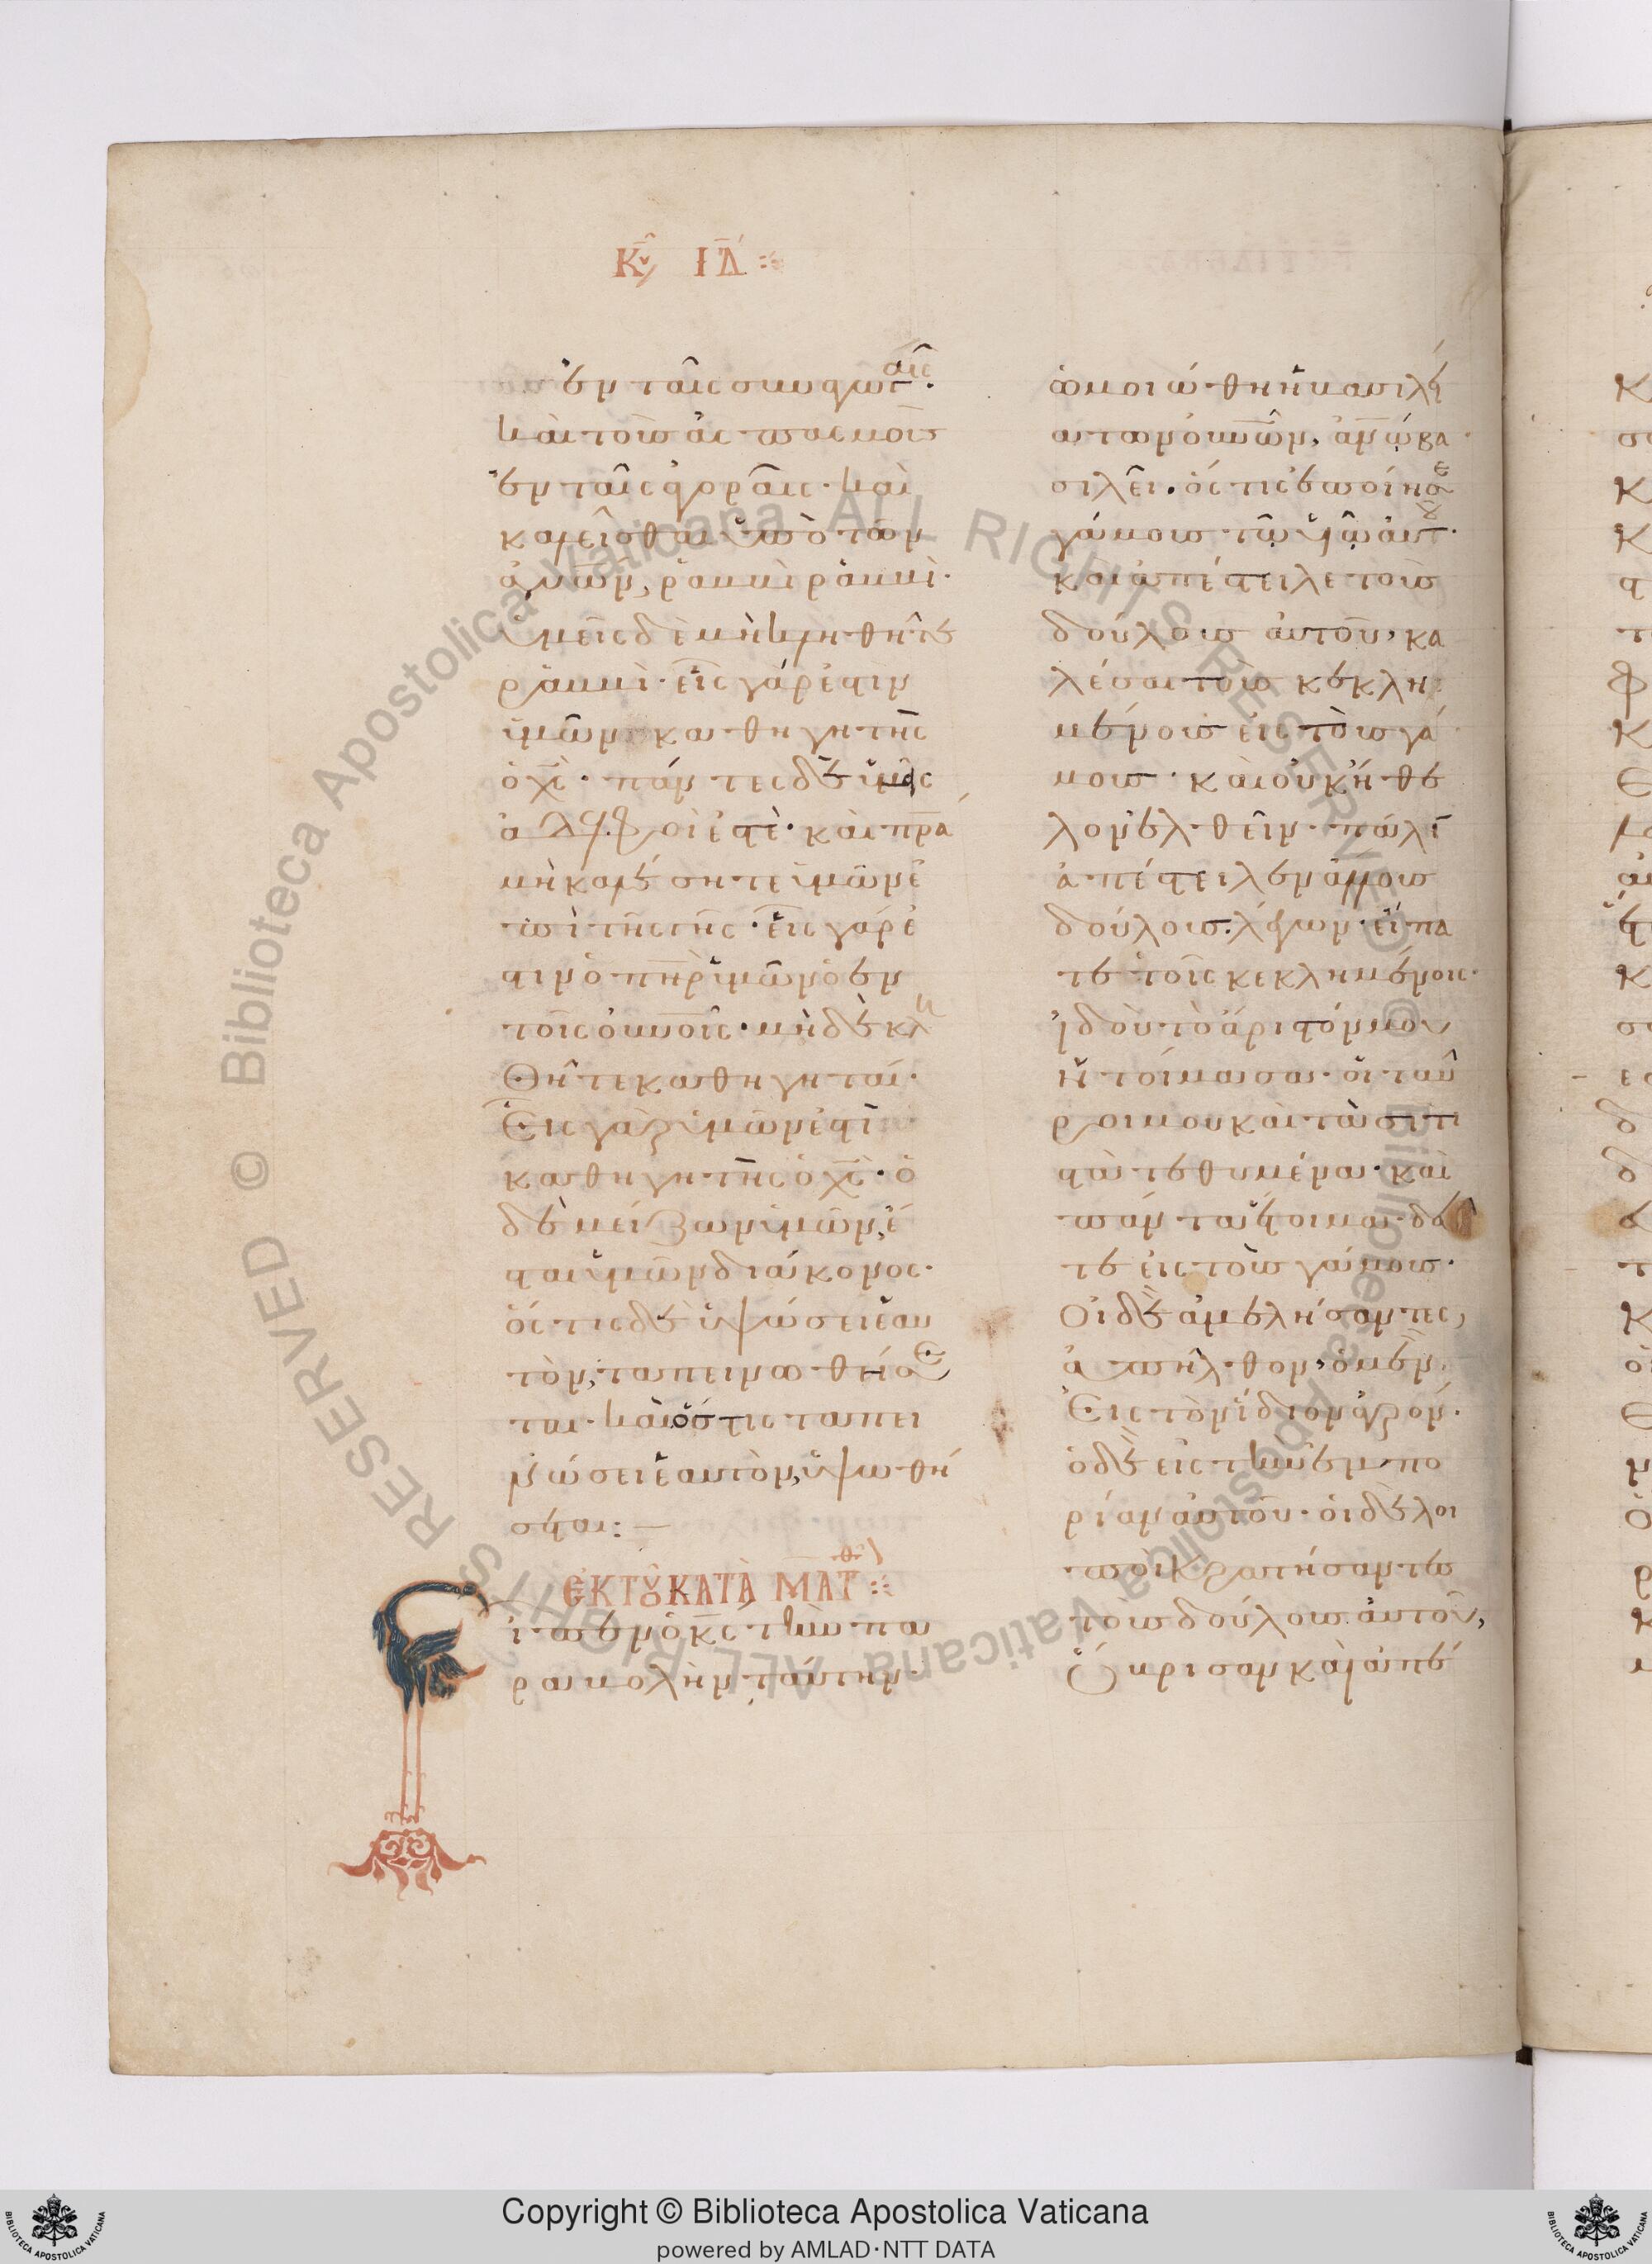 Κυ ΙΔ
ἐν ταῖς συναγωγαῖς·
καὶ τοὺς ἀσπασμοὺς
ἐν ταῖς ἀγοραῖς· καὶ
καλεῖσθαι ὑπὸ τῶν
ἀνων, ῥαββὶ ῥαββί·
ὑμεῖς δὲ μὴ κληθῆτε
ῥαββί· εἷς γάρ ἐστιν
ὑμῶν καθηγητὴς
ὁ χς· πάντες δὲ ὑμεῖς
ἀδελφοί ἐστε· καὶ πρα
μὴ καλέσητε ὑμῶν ἐ
πὶ τῆς γῆς· εἷς γάρ ἐ
στιν ὁ πηρ ὑμῶν ὁ ἐν
τοῖς οὐνοις· μὴ δὲ κλη
θῆτε καθηγηταί·
Εἷς γὰρ ὑμῶν ἐστὶ
καθηγητὴς ὁ χς· ὁ
δὲ μείζων ὑμῶν, ἔ
σται ὑμῶν διάκονος·
ὅστις δὲ ὑψώσει ἑαυ
τὸν, ταπεινωθήσε
ται· καὶ ὅστις ταπει
νώσει ἑαυτὸν, ὑψωθή
σεται:—
ἐκ τοῦ κατὰ Ματθ
ιπεν ὁ κς τὴν πα
ραβολὴν ταύτην·
ὡμοιώθη ἡ βασιλεί
α τῶν οὐνων, ἀνω βα
σιλεῖ· ὅστις ἐποίησε
γάμους τῷ υἱῷ αὐτου·
καὶ ἀπέστειλε τοὺς
δούλους αὐτοῦ, κα
λέσαι τοὺς κεκλη
μένους εἰς τοὺς γά
μους· καὶ οὐκ ἤθε
λον ἐλθεῖν· πάλιν
ἀπέστειλεν ἄλλους
δούλους λέγων· εἴπα
τε τοῖς κεκλημένοις·
ἰδοὺ τὸ ἄριστόν μου
ἡτοίμασα· οἱ ταῦ
ροι μου καὶ τὰ σιτι
στὰ τεθυμένα· καὶ
πάντα ἕτοιμα· δεῦ
τε εἰς τοὺς γάμους·
Οἱ δὲ ἀμελήσαντες,
ἀπῆλθον, ὁ μὲν
Εἰς τὸν ἴδιον ἀγρόν·
ὁ δὲ εἰς τὴν ἐμπο
ρίαν αὐτοῦ· οἱ δὲ λοι
ποὶ κρατήσαντες
τοὺς δούλους αὐτοῦ,
ὕβρισαν καὶ ἀπέ
© Biblioteca Apostolica Vaticana ALL RIGHTS RESERVED © Biblioteca Apostolica Vaticana ALL RIGHTS RESERVED
Copyright © Biblioteca Apostolica Vaticana
powered by AMLAD·NTT DATA
BIBLIOTECA APOSTOLICA VATICANA
BIBLIOTECA APOSTOLICA VATICANA